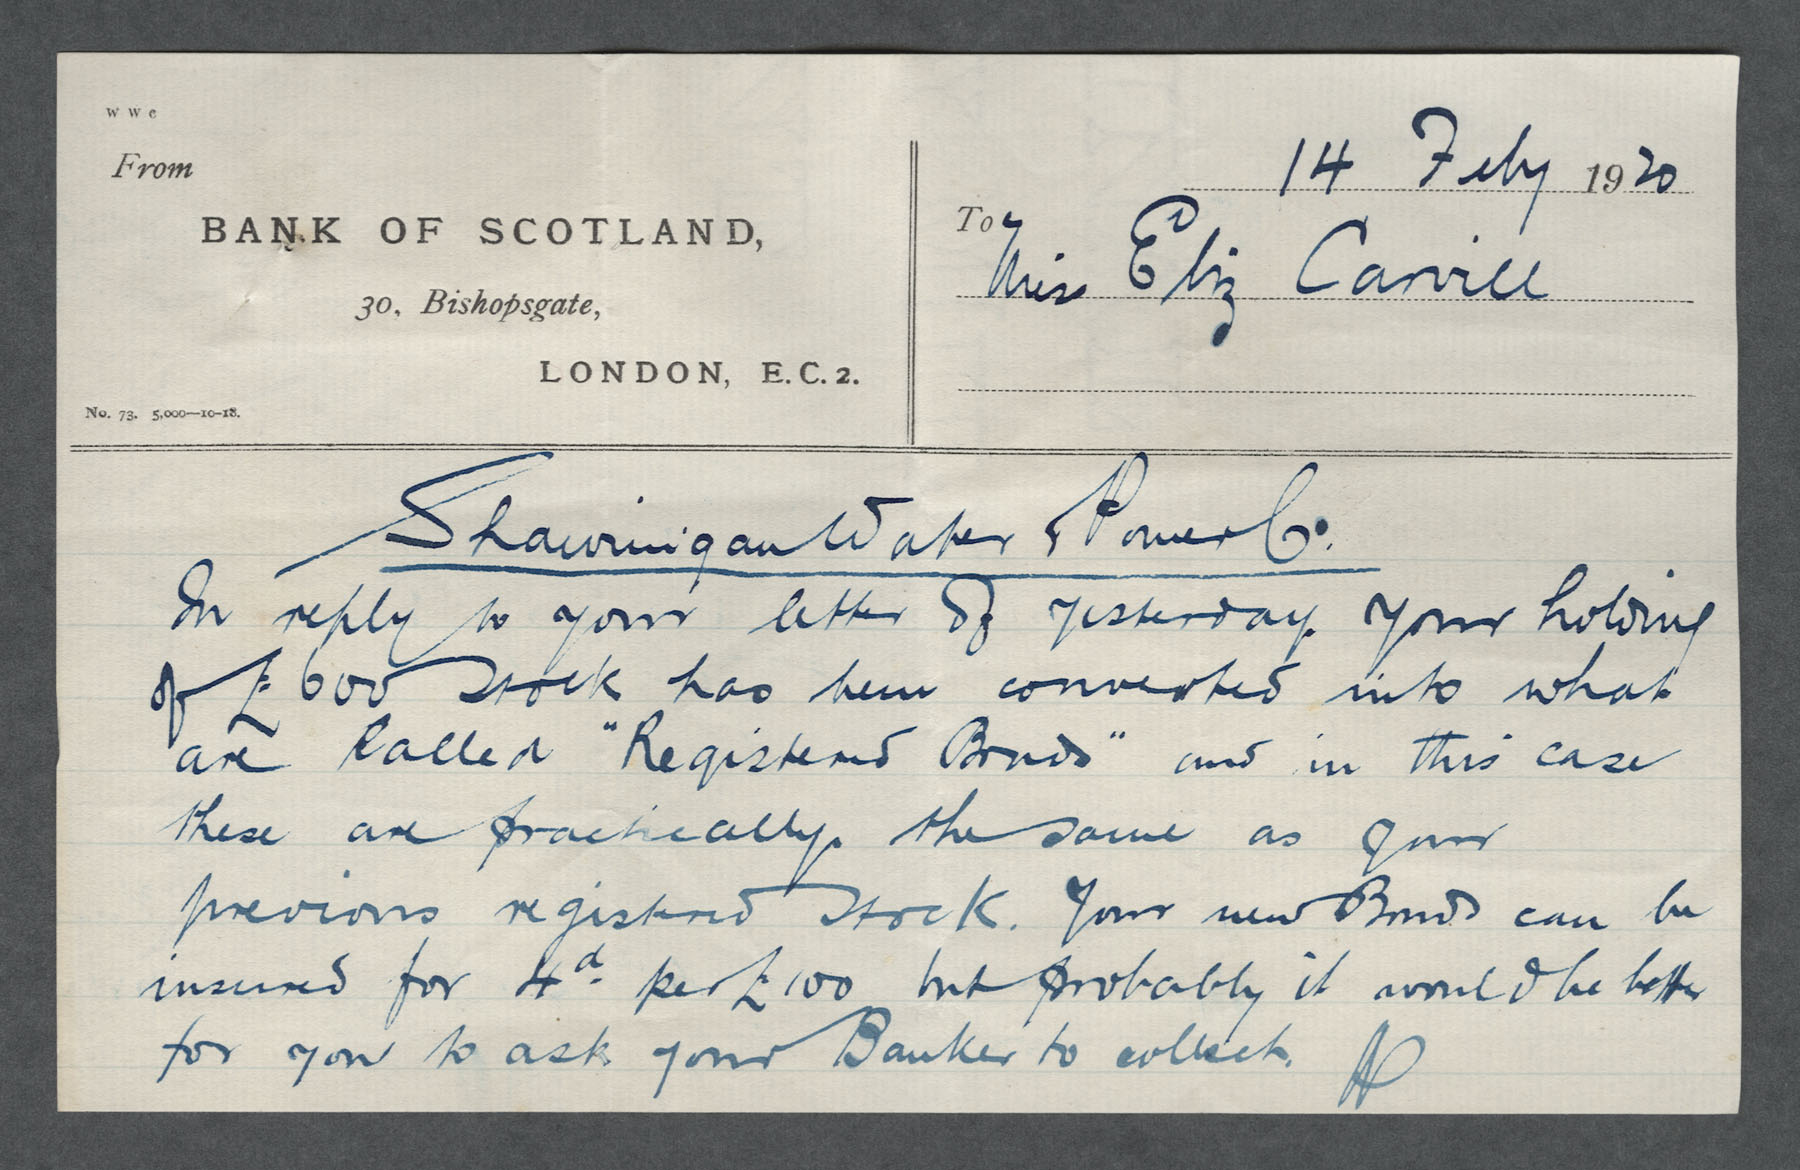 W W C
From
BANK OF SCOTLAND,
30, Bishopsgate,
LONDON, E.C.2.
No. 73. 5,000—10-18.
14 Feby 1920
To Miss Eliz Carvill
Shawinigan Water & Power Co.
In reply to your letter of yesterday. Your holding
of £600 Stock has been converted into what
are called "Registered Bonds" and in this case
these are practically the same as your
previous registered Stock. Your new Bonds can be
insured for 4d. per £100 but probably it would be better
for you to ask your Banker to collect.